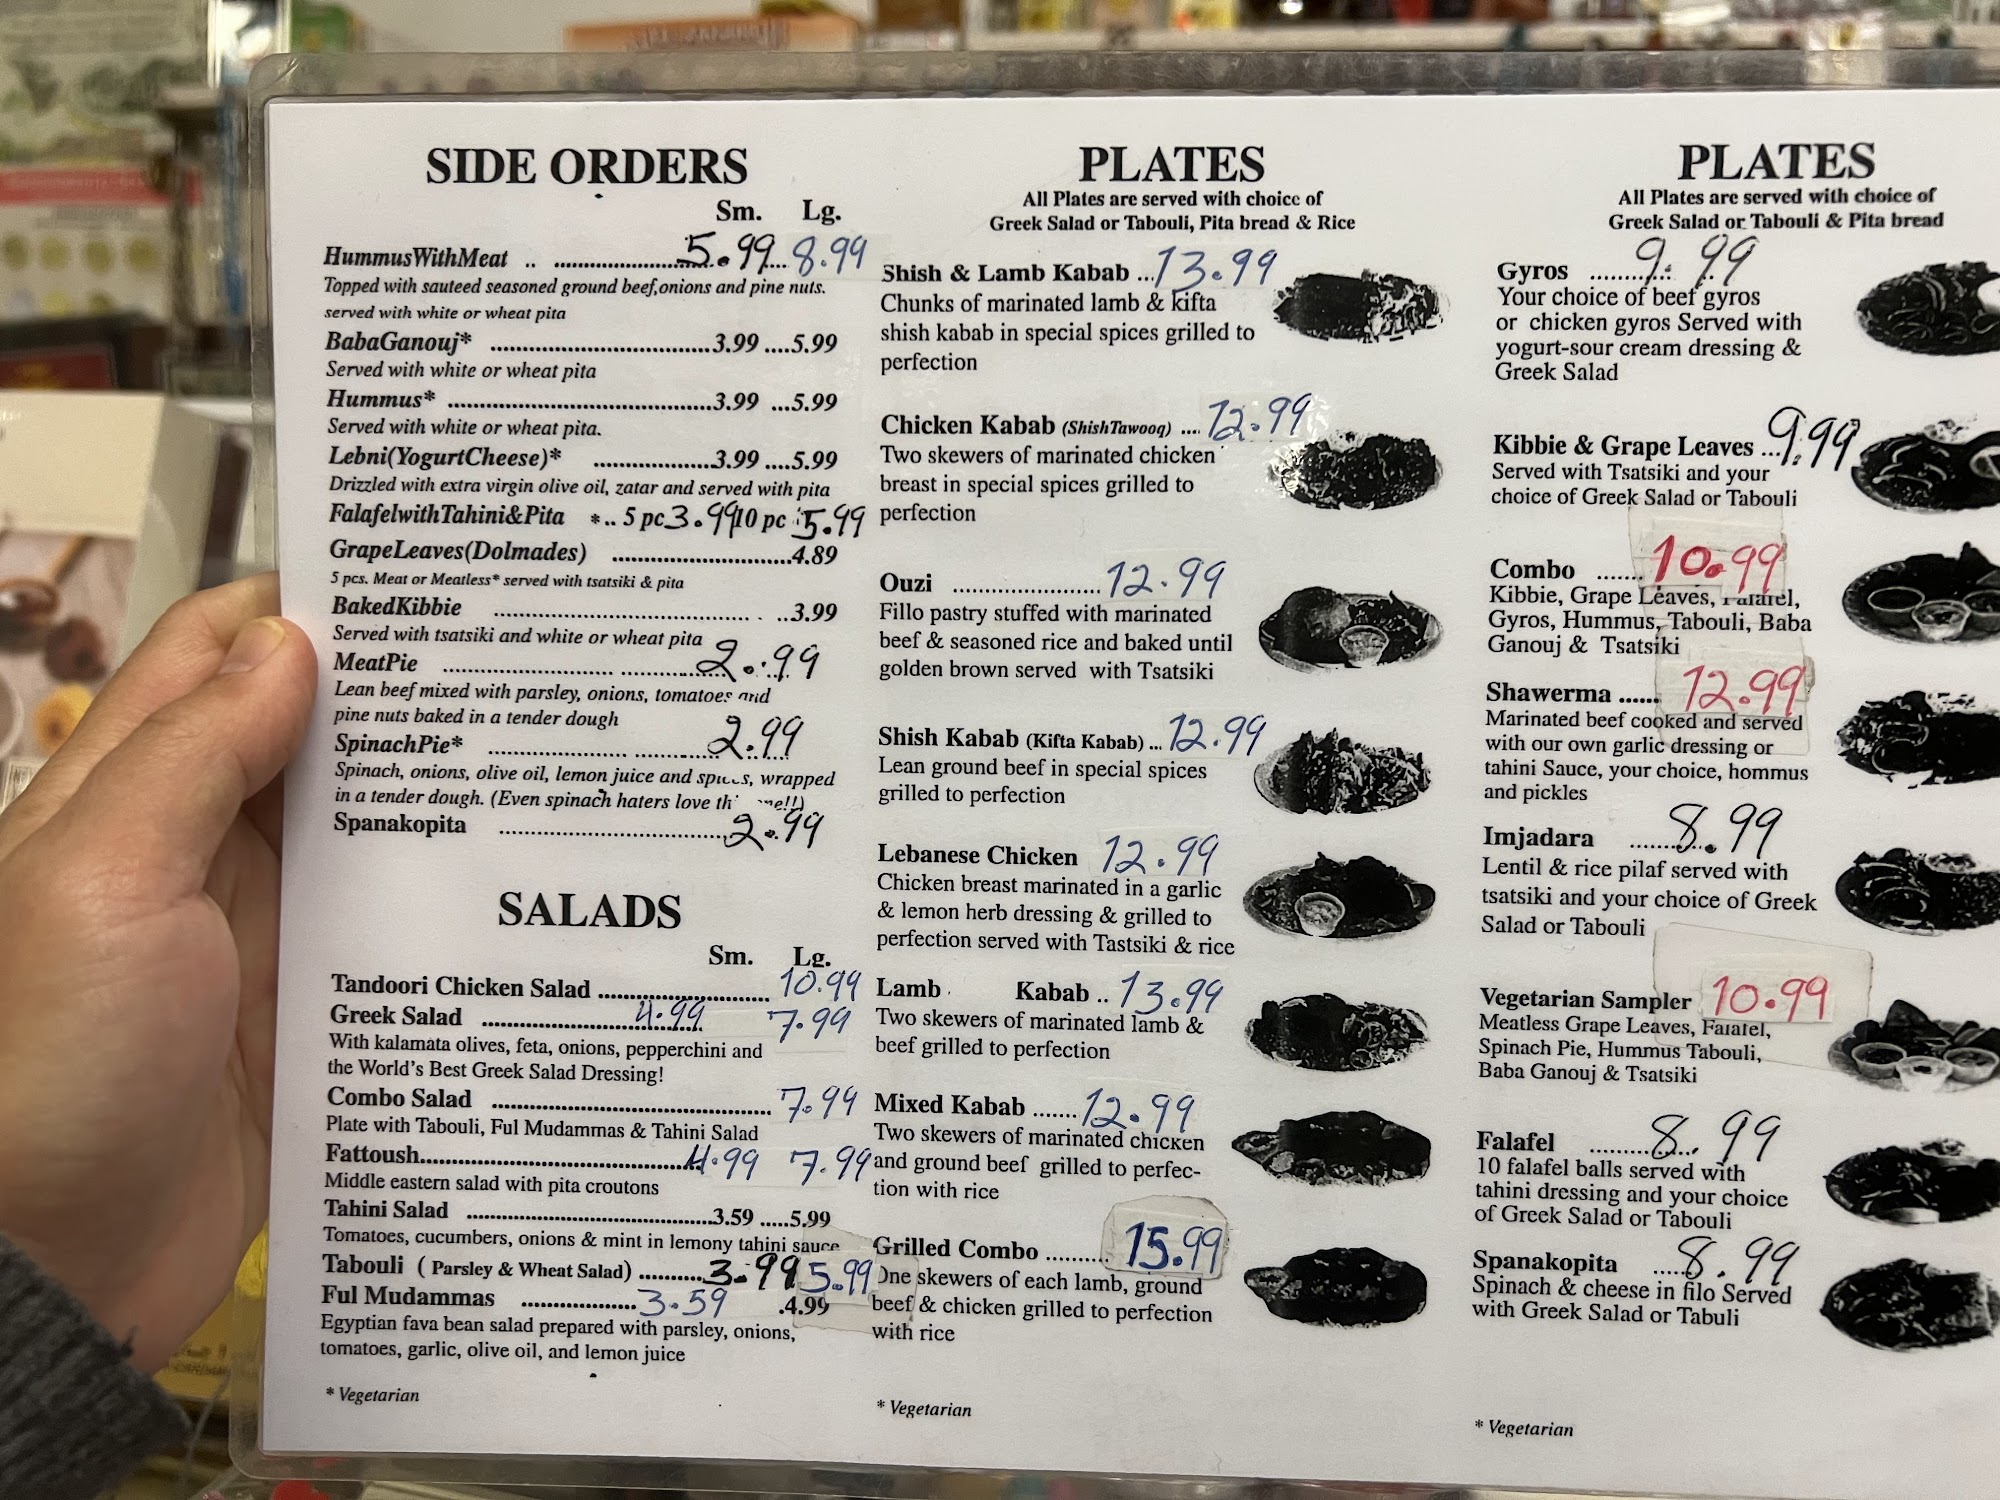 SIDE ORDERS
Sm. Lg.
HummusWithMeat .. ........................5.99....8.99
Topped with sauteed seasoned ground beef,onions and pine nuts.
served with white or wheat pita
BabaGanouj* ....................................3.99 ....5.99
Served with white or wheat pita
Hummus* ...........................................3.99 ...5.99
Served with white or wheat pita.
Lebni(YogurtCheese)* ...................3.99 ....5.99
Drizzled with extra virgin olive oil, zatar and served with pita
FalafelwithTahini&Pita *.. 5 pc 3.99 10 pc 5.99
GrapeLeaves(Dolmades) ..............................4.89
5 pcs. Meat or Meatless* served with tsatsiki & pita
BakedKibbie ........................................... . ..3.99
Served with tsatsiki and white or wheat pita
MeatPie ............................ ................2.99
Lean beef mixed with parsley, onions, tomatoes and
pine nuts baked in a tender dough
SpinachPie* ....................... ............2.99
Spinach, onions, olive oil, lemon juice and spices, wrapped
in a tender dough. (Even spinach haters love th   me!!)
Spanakopita ......................................2.99
SALADS
Sm. Lg.
Tandoori Chicken Salad ............................ 10.99
Greek Salad ..................................... 4.99 7.99
With kalamata olives, feta, onions, pepperchini and
the World's Best Greek Salad Dressing!
Combo Salad .............................................. 7.99
Plate with Tabouli, Ful Mudammas & Tahini Salad
Fattoush..............................................4.99 7.99
Middle eastern salad with pita croutons
Tahini Salad .........................................3.59 .....5.99
Tomatoes, cucumbers, onions & mint in lemony tahini sauce
Tabouli ( Parsley & Wheat Salad) ..........3.99 5.99
Ful Mudammas ...................3.59 .4.99
Egyptian fava bean salad prepared with parsley, onions,
tomatoes, garlic, olive oil, and lemon juice
* Vegetarian
PLATES
All Plates are served with choice of
Greek Salad or Tabouli, Pita bread & Rice
Shish & Lamb Kabab ...13.99
Chunks of marinated lamb & kifta
shish kabab in special spices grilled to
perfection
Chicken Kabab (ShishTawooq) .... 12.99
Two skewers of marinated chicken
breast in special spices grilled to
perfection
Ouzi ......................... 12.99
Fillo pastry stuffed with marinated
beef & seasoned rice and baked until
golden brown served with Tsatsiki
Shish Kabab (Kifta Kabab) ... 12.99
Lean ground beef in special spices
grilled to perfection
Lebanese Chicken 12.99
Chicken breast marinated in a garlic
& lemon herb dressing & grilled to
perfection served with Tastsiki & rice
Lamb Kabab .. 13.99
Two skewers of marinated lamb &
beef grilled to perfection
Mixed Kabab .......12.99
Two skewers of marinated chicken
and ground beef grilled to perfec-
tion with rice
Grilled Combo .......... 15.99
One skewers of each lamb, ground
beef & chicken grilled to perfection
with rice
* Vegetarian
PLATES
All Plates are served with choice of
Greek Salad or Tabouli & Pita bread
Gyros ..............9.99
Your choice of beef gyros
or chicken gyros Served with
yogurt-sour cream dressing &
Greek Salad
Kibbie & Grape Leaves ...9.99
Served with Tsatsiki and your
choice of Greek Salad or Tabouli
Combo ....... 10.99
Kibbie, Grape Leaves, Falafel,
Gyros, Hummus, Tabouli, Baba
Ganouj & Tsatsiki
Shawerma ...... 12.99
Marinated beef cooked and served
with our own garlic dressing or
tahini Sauce, your choice, hommus
and pickles
Imjadara ..............8.99
Lentil & rice pilaf served with
tsatsiki and your choice of Greek
Salad or Tabouli
Vegetarian Sampler 10.99
Meatless Grape Leaves, Falafel,
Spinach Pie, Hummus Tabouli,
Baba Ganouj & Tsatsiki
Falafel ..............8.99
10 falafel balls served with
tahini dressing and your choice
of Greek Salad or Tabouli
Spanakopita ....8.99
Spinach & cheese in filo Served
with Greek Salad or Tabuli
* Vegetarian